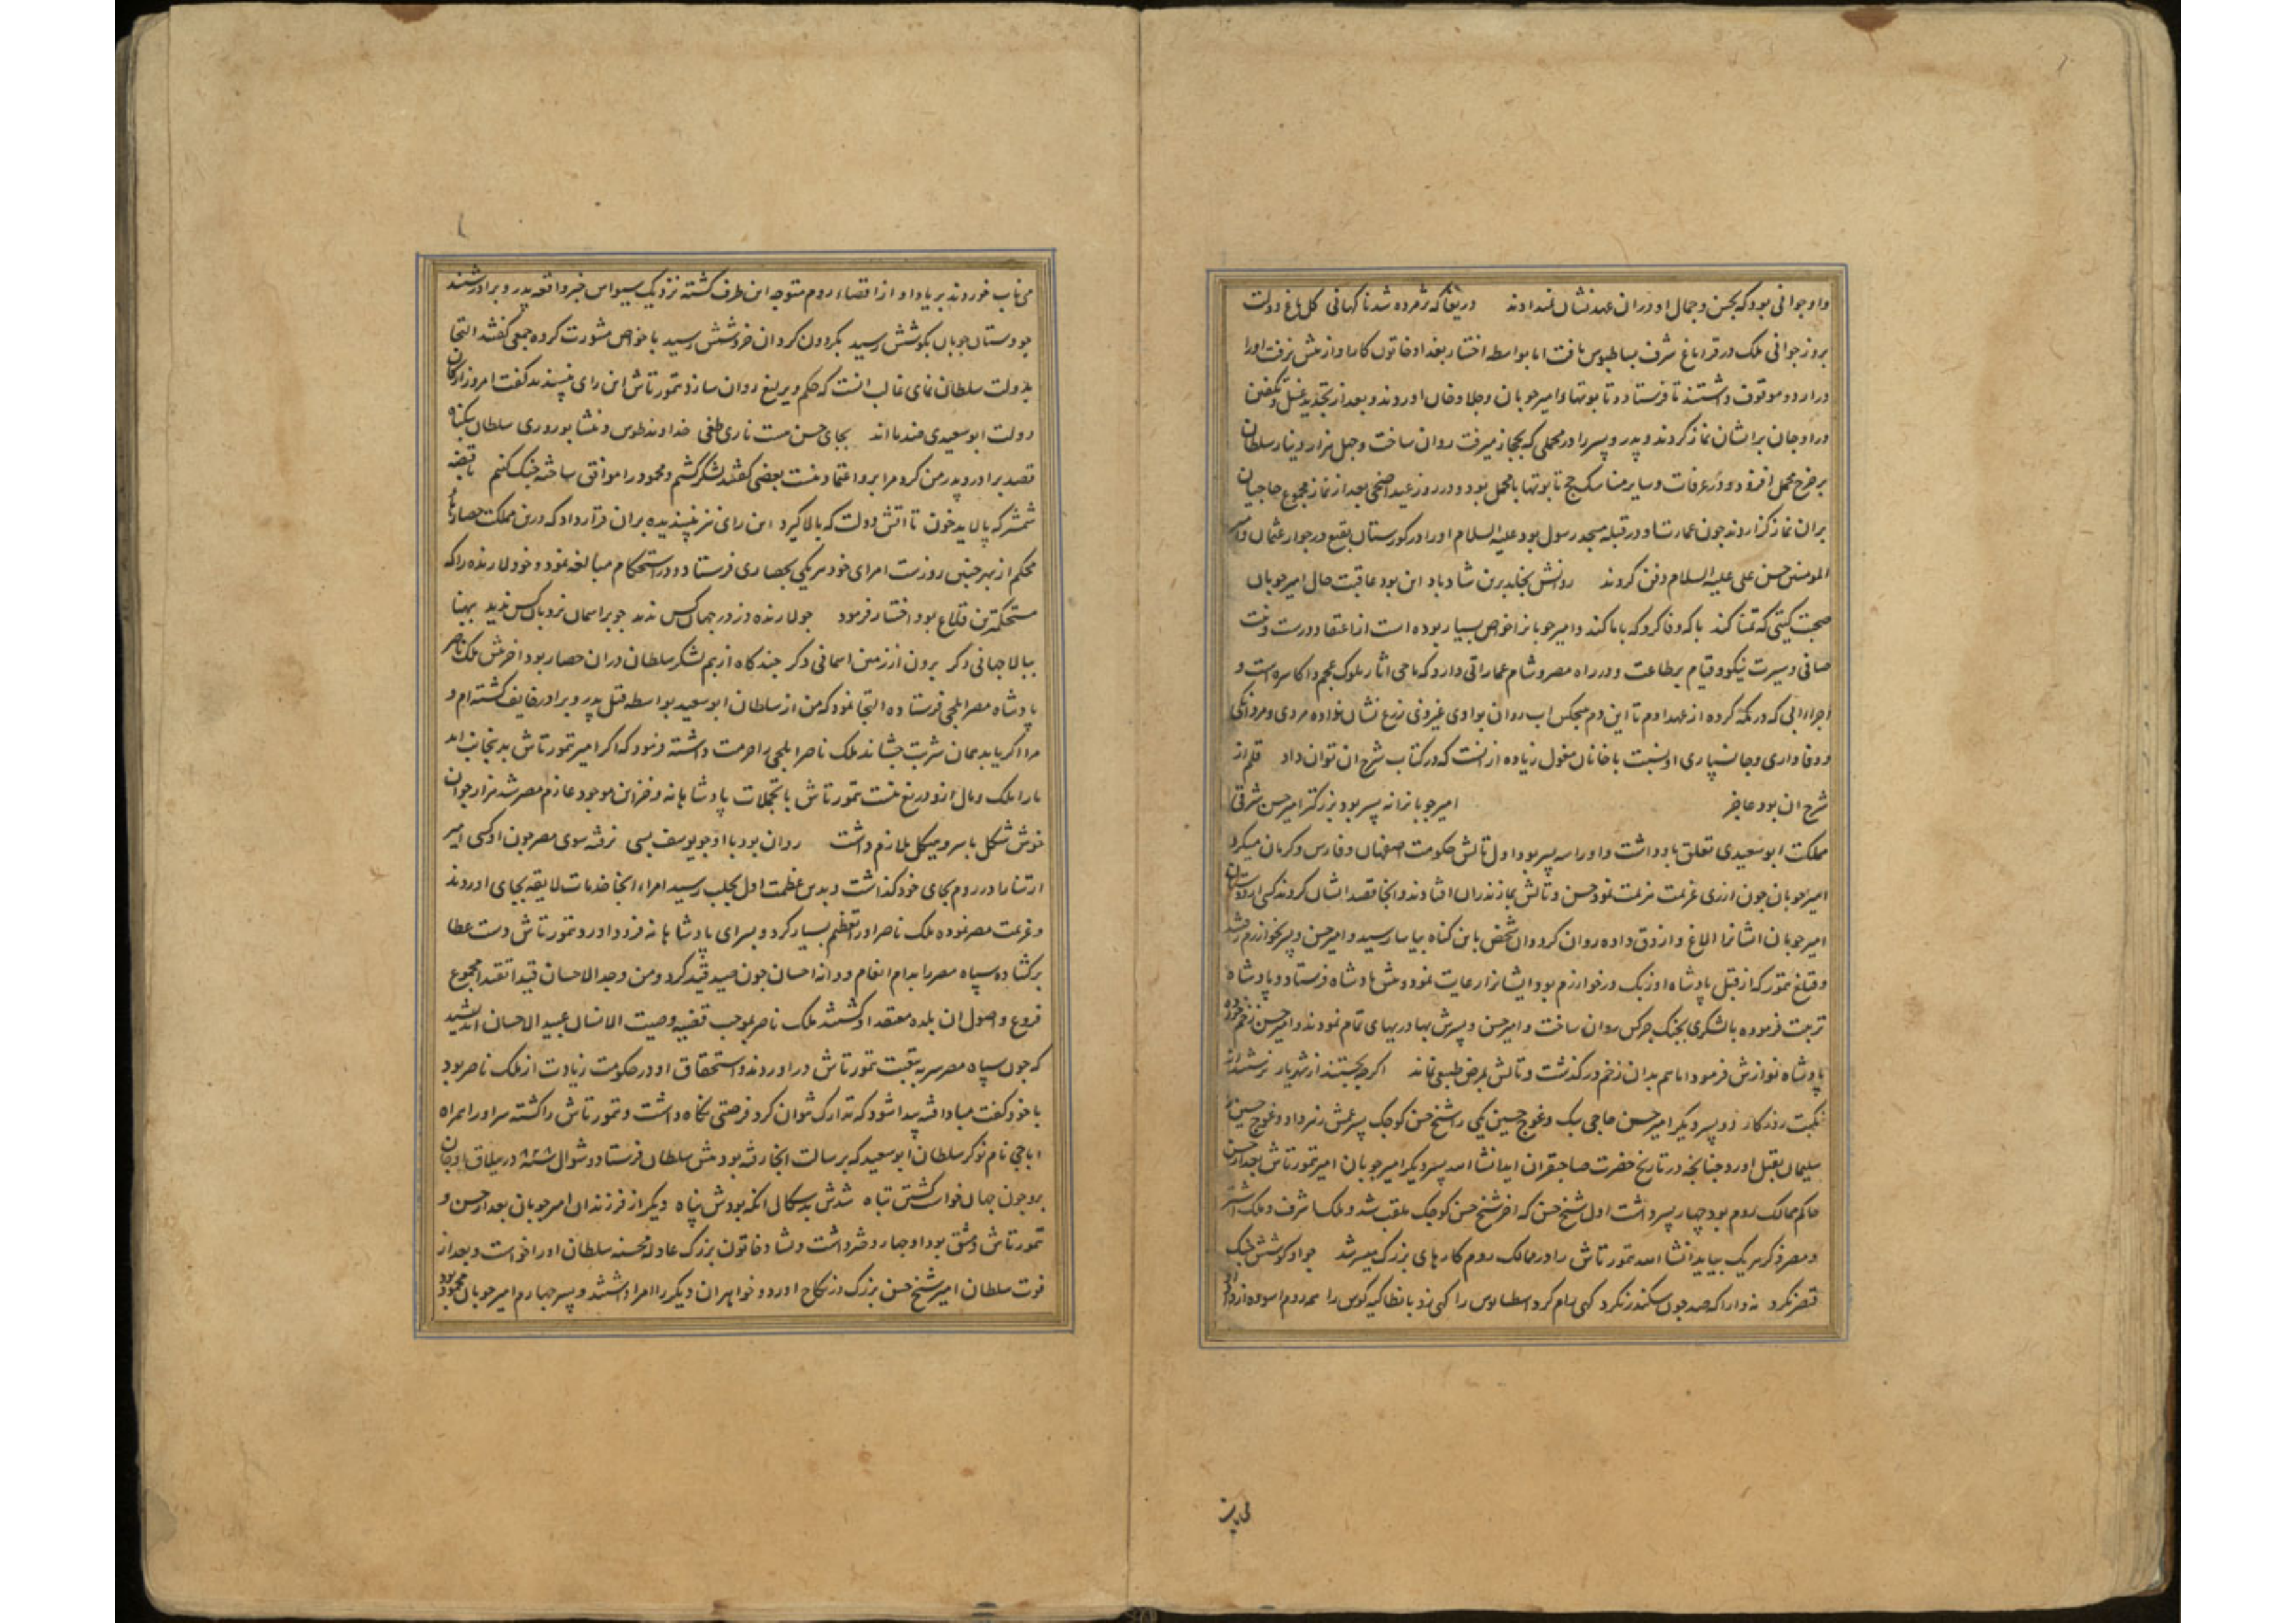 واو جوانی بود که بحسن و جمال او دوران عهد نشان نمیدادند دریغا که پژمرده شد ناکهانی کل باغ دولت
بروز جوانی ملک در قراباغ شرف بساطبوس یافت اما بواسطه اختیار بغداد خاتون کار او از پیش نرفت او را
در اردو موقوف داشتند تا فرستاد و تابوتهاء امیر جوبان و جلاو خان اوردند و بعد از تجدید غسل و تکفین
در اوجان بر ایشان نماز کردند و پدر و پسر را در محملی که بحجاز میرفت روان ساخت و جهل هزار دینار سلطان
بر خرج محمل افزود و در عرفات و سایر مناسک حج تابوتها با محمل بود و در روز عید اضحی بعد از نماز مجموع حاجیان
بران نماز کزاردند جون عمارت او در قبله مسجد رسول بود علیه السلام او را در کورستان بقیع در جوار عثمان و امیر
المومنین حسن علی علیه السلام دفن کردند روانش بخلد برین شاد باد این بود عاقبت حال امیر جوبان
صحبت کیتی که تمنا کند با که وفا کرد که با ما کند و امیر جوبانرا خواص بسیار بوده است از اعتقاد درست و نیت
صافی و سیرت نیکو و قیام بر طاعت و در راه مصر و شام عماراتی دارد که ماحی اثار ملوک عجم و اکاسره است و
اجراء ابی که در مکه کرده از عهد ادم تا این دم هیجکس اب روان بوادی غیر ذی زرع نشان نداده مردی و مردانکی
و وفاداری و جانسپاری او نسبت با خانان مغول زیاده از انست که در کتاب شرح ان توان داد قلم از
شرح ان بود عاجز امیر جوبانرا نه پسر بود بزرکتر امیر حسن شرقی
مملکت ابوسعیدی تعلق باو داشت و او را سه پسر بود اول تالش حکومت اصفهان و فارس و کرمان میکرد
امیر جوبان جون از ری عزیمت هزیمت نمود حسن و تالش بمازندران افتادند و انجا قصد ایشان کردند کسی از دوستان
امیر جوبان ایشانرا الاغ و ازوق داده روان کرد و ان شخص باین کناه بیاسا رسید و امیر حسن و پسر بخوارزم رفتند
و قتلغ تمور که از قبل پادشاه اوزبک در خوارزم بود ایشانرا رعایت نمود و پیش پادشاه فرستاد و پادشاه
تربیت فرموده با لشکری بجنک جرکس روان ساخت و امیر حسن و پسرش بهادریهای تمام نمودند و امیر حسن زخم خورده
پادشاه نوازش فرمود اما هم بدان زخم در کذشت و تالش بمرض طبیعی نماند اکر بجستند از شهریار نرستند از
نکبت روزکار دو پسر دیکر امیر حسن حاجی بیک و غوج حسین یکی را شیخ حسن کوجک پسر عمش زهر داد و غوج حسین را
سلیمان بقتل اورد جنانجه در تاریخ حضرت صاحبقران اید انشا الله پسر دیکر امیر جوبان امیر تمورتاش بعد از حسن
حاکم ممالک روم بود جهار پسر داشت اول شیخ حسن که اخر شیخ حسن کوجک ملقب شد و ملک اشرف و ملک اشتر
و مصر ذکر هر یک بیاید انشا الله تمورتاش را در ممالک روم کارهای بزرک میسر شد جو او کوشش جنک
قیصر نکرد نه دارا که صد جون سکندر نکرد کهی رام کرد اسطابوس را کهی زد بانطاکیه کوس را همه روم اسوده از داد
می یز
می ناب خوردند بر یاد او از اقصاء روم متوجه این طرف کشته نزدیک سیواس خبر واقعه پدر و برادر شنید
جو دستان جوبان بکوشش رسید بکردون کردان خروشش رسید با خواص مشورت کرده جمعی کفتند التجا
بدولت سلطان نمای غالب انست که حکم و یرلیغ روان سازد تمورتاش این رای نپسندید کفت امروز ارکان
دولت ابوسعیدی ضد ما اند بجای حسن هست ناری طغی خداوند طوس و نشابور وری سلطان بیکناه
قصد برادر و پدر من کرد مرا برو اعتماد نیست بعضی کفتند لشکر کشیم و محمود را موافق ساخته جنک کنیم تا قبضه
شمشیر که پالاید خون تا اتش دولت که بالا کیرد این رای نیز نپسندیده بران قرار داد که درین مملکت حصارها
محکم از بهر جنین روزست امرای خود هر یکی بحصاری فرستاد و در استحکام مبالغه نمود و خود لارنده را که
مستحکمترین قلاع بود اختیار فرمود جو لارنده دز در جهان کس ندید جو بر اسمان نردبان کس ندید بپهنا
ببالا جهانی دکر برون از زمین اسمانی دکر جند کاه از بیم لشکر سلطان دران حصار بود اخر پیش ملک ناصر
پادشاه مصر ایلجی فرستاده التجا نمود که من از سلطان ابوسعید بواسطه قتل پدر و برادر خایف کشته ام و
مرا اکر یابد همان شربت جشاند ملک ناصر ایلجی را حرمت داشته فرمود که اکر امیر تمورتاش بدینجانب اید
ما را ملک و مال ازو دریغ نیست تمورتاش با تجملات پادشاهانه و خزاین موجود عازم مصر شد هزار جوان
خوش شکل با سر و هیکل ملازم داشت روان بود با او جو یوسف بسی نرفته سوی مصر جون او کسی امیر
ارتنا را در روم بجای خود کذاشت و بدین عظمت اول بحلب رسید امراء انجا خدمات لایقه بجای اوردند
و عزیمت مصر نموده ملک ناصر او را تعظیم بسیار کرد و بسرای پادشاهانه فرود اورد و تمورتاش دست عطا
بر کشاده سپاه مصر را بدام انعام و دانه احسان جون صید قید کرد و من وجد الاحسان قیدا تقیدا مجموع
فروع و اصول ان بلده معتقد او کشتند ملک ناصر بموجب قضیه وصیت الانسان عبید الاحسان اندیشید
که جون سپاه مصر سر ببیعت تمورتاش در اوردند و استحقاق او در حکومت زیادت از ملک ناصر بود
با خود کفت مبادا فتنه پیدا شود که تدارک نتوان کرد فرصتی نکاه داشت و تمورتاش را کشته سر او را همراه
اباجی نام نوکر سلطان ابوسعید که برسالت انجا رفته بود پیش سلطان فرستاد و شوال سنه ۷۲۸ در ییلاق اوجان
برو جون جهان خواست کشتن تباه شدش بدسکال انکه بودش پناه دیکر از فرزندان امیر جوبان بعد از حسن و
تمورتاش دمشق بود او جهار دختر داشت دلشاد خاتون بزرک عادله محسنه سلطان او را خواست و بعد از
فوت سلطان امیر شیخ حسن بزرک در نکاح اورد و خواهران دیکر را امرا داشتند و پسر جهارم امیر جوبان محمود بود